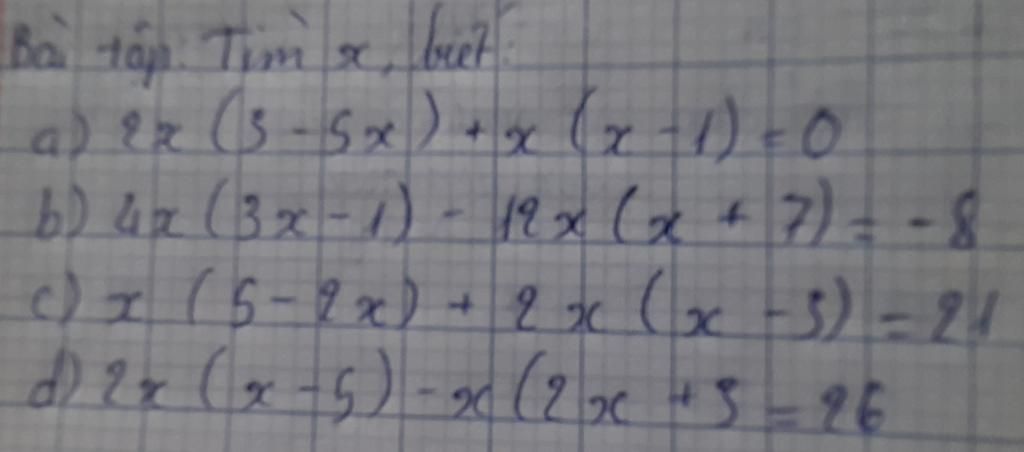 Bài tập: Tìm x, biết:
a) 2x (3 - 5x) + x (x - 1) = 0
b) 4x (3x - 1) - 12x (x + 7) = - 8
c) x (5 - 2x) + 2x (x - 3) = 21
d) 2x (x - 5) - x (2x + 3 = 26